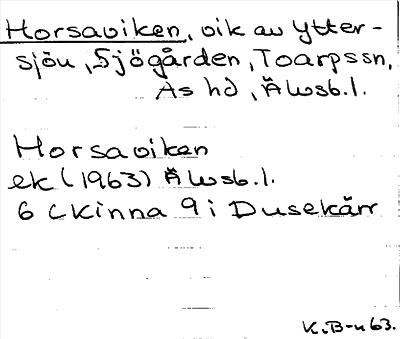 Horsaviken, vik av Ytter-
sjön, Sjögården, Toarpssn,
Ås hd, Älvsb.l.
Horsaviken
ek (1963) Älvsb.l.
6 Ckinna 9 i Dusekärr
K.B-n 63.